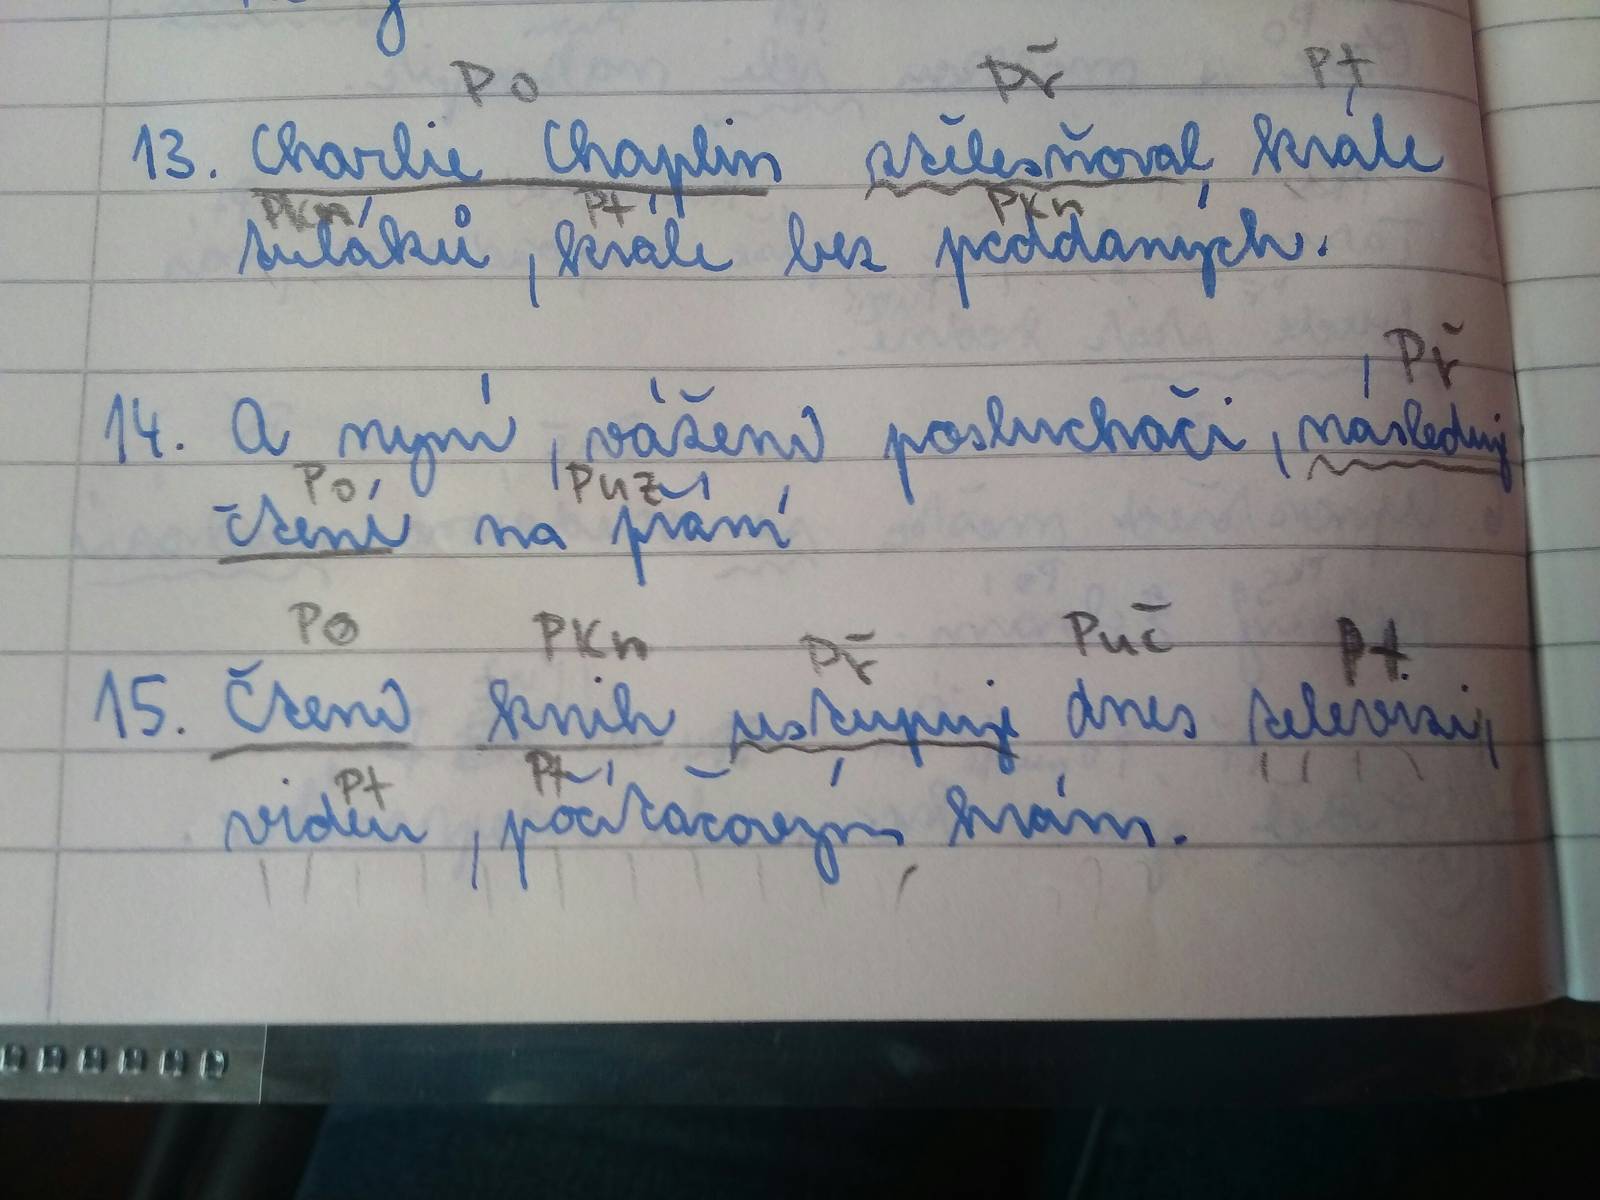 Po Př Pt
13. Charlie Chaplin ztělesňoval krále
PKn Pt PKn
tuláků, krále bez poddaných.
Př
14. A nyní, vážení posluchači, následuj
Po Puz
čtení na přání
Po PKn Př Puč Pt
15. Čtení knih ustupuje dnes televizi,
Pt Pt
videu, počítačovým hrám.